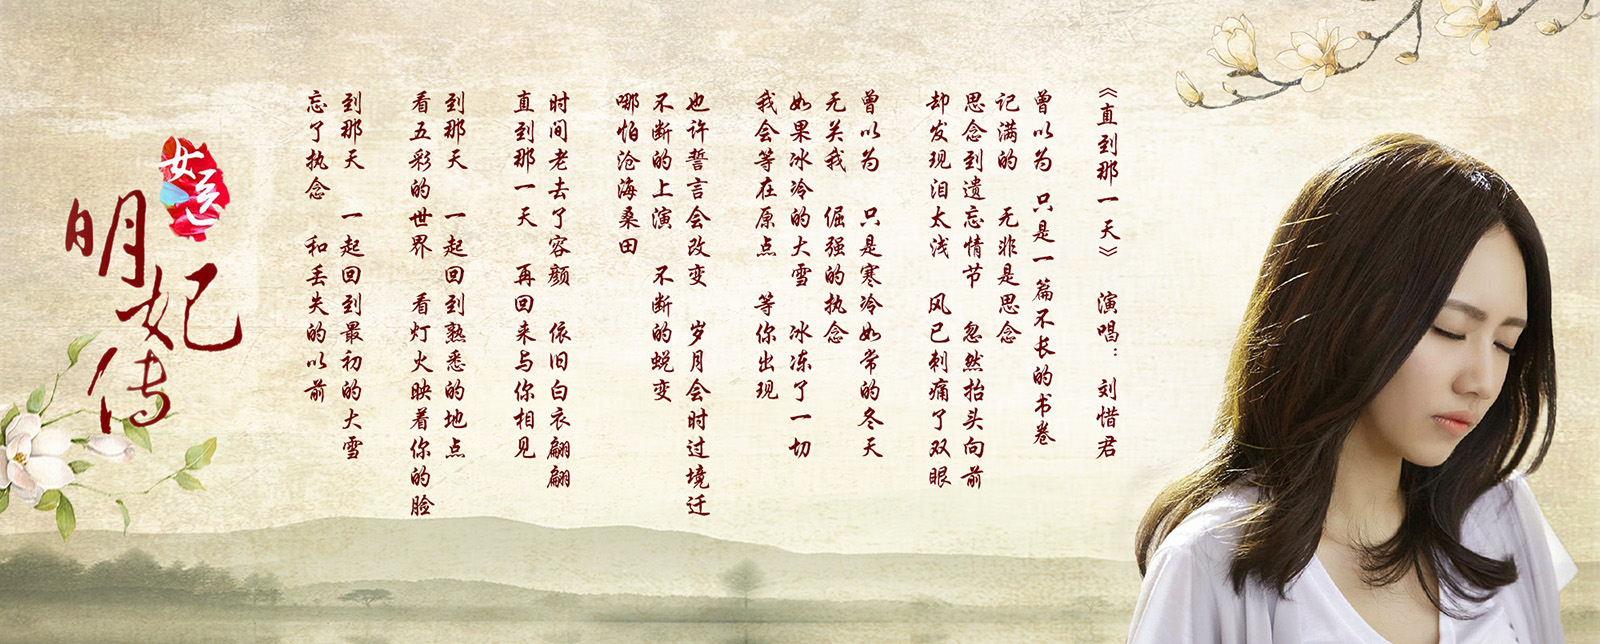 《直到那一天》 演唱：刘惜君
曾以为 只是一篇不长的书卷
记满的 无非是思念
思念到遗忘情节 忽然抬头向前
却发现泪太浅 风已刺痛了双眼
曾以为 只是寒冷如常的冬天
无关我 倔强的执念
如果冰冷的大雪 冰冻了一切
我会等在原点 等你出现
也许誓言会改变 岁月会时过境迁
不断的上演 不断的蜕变
哪怕沧海桑田
时间老去了容颜 依旧白衣翩翩
直到那一天 再回来与你相见
到那天 一起回到熟悉的地点
看五彩的世界 看灯火映着你的脸
到那天 一起回到最初的大雪
忘了执念 和丢失的以前
女医
明妃传